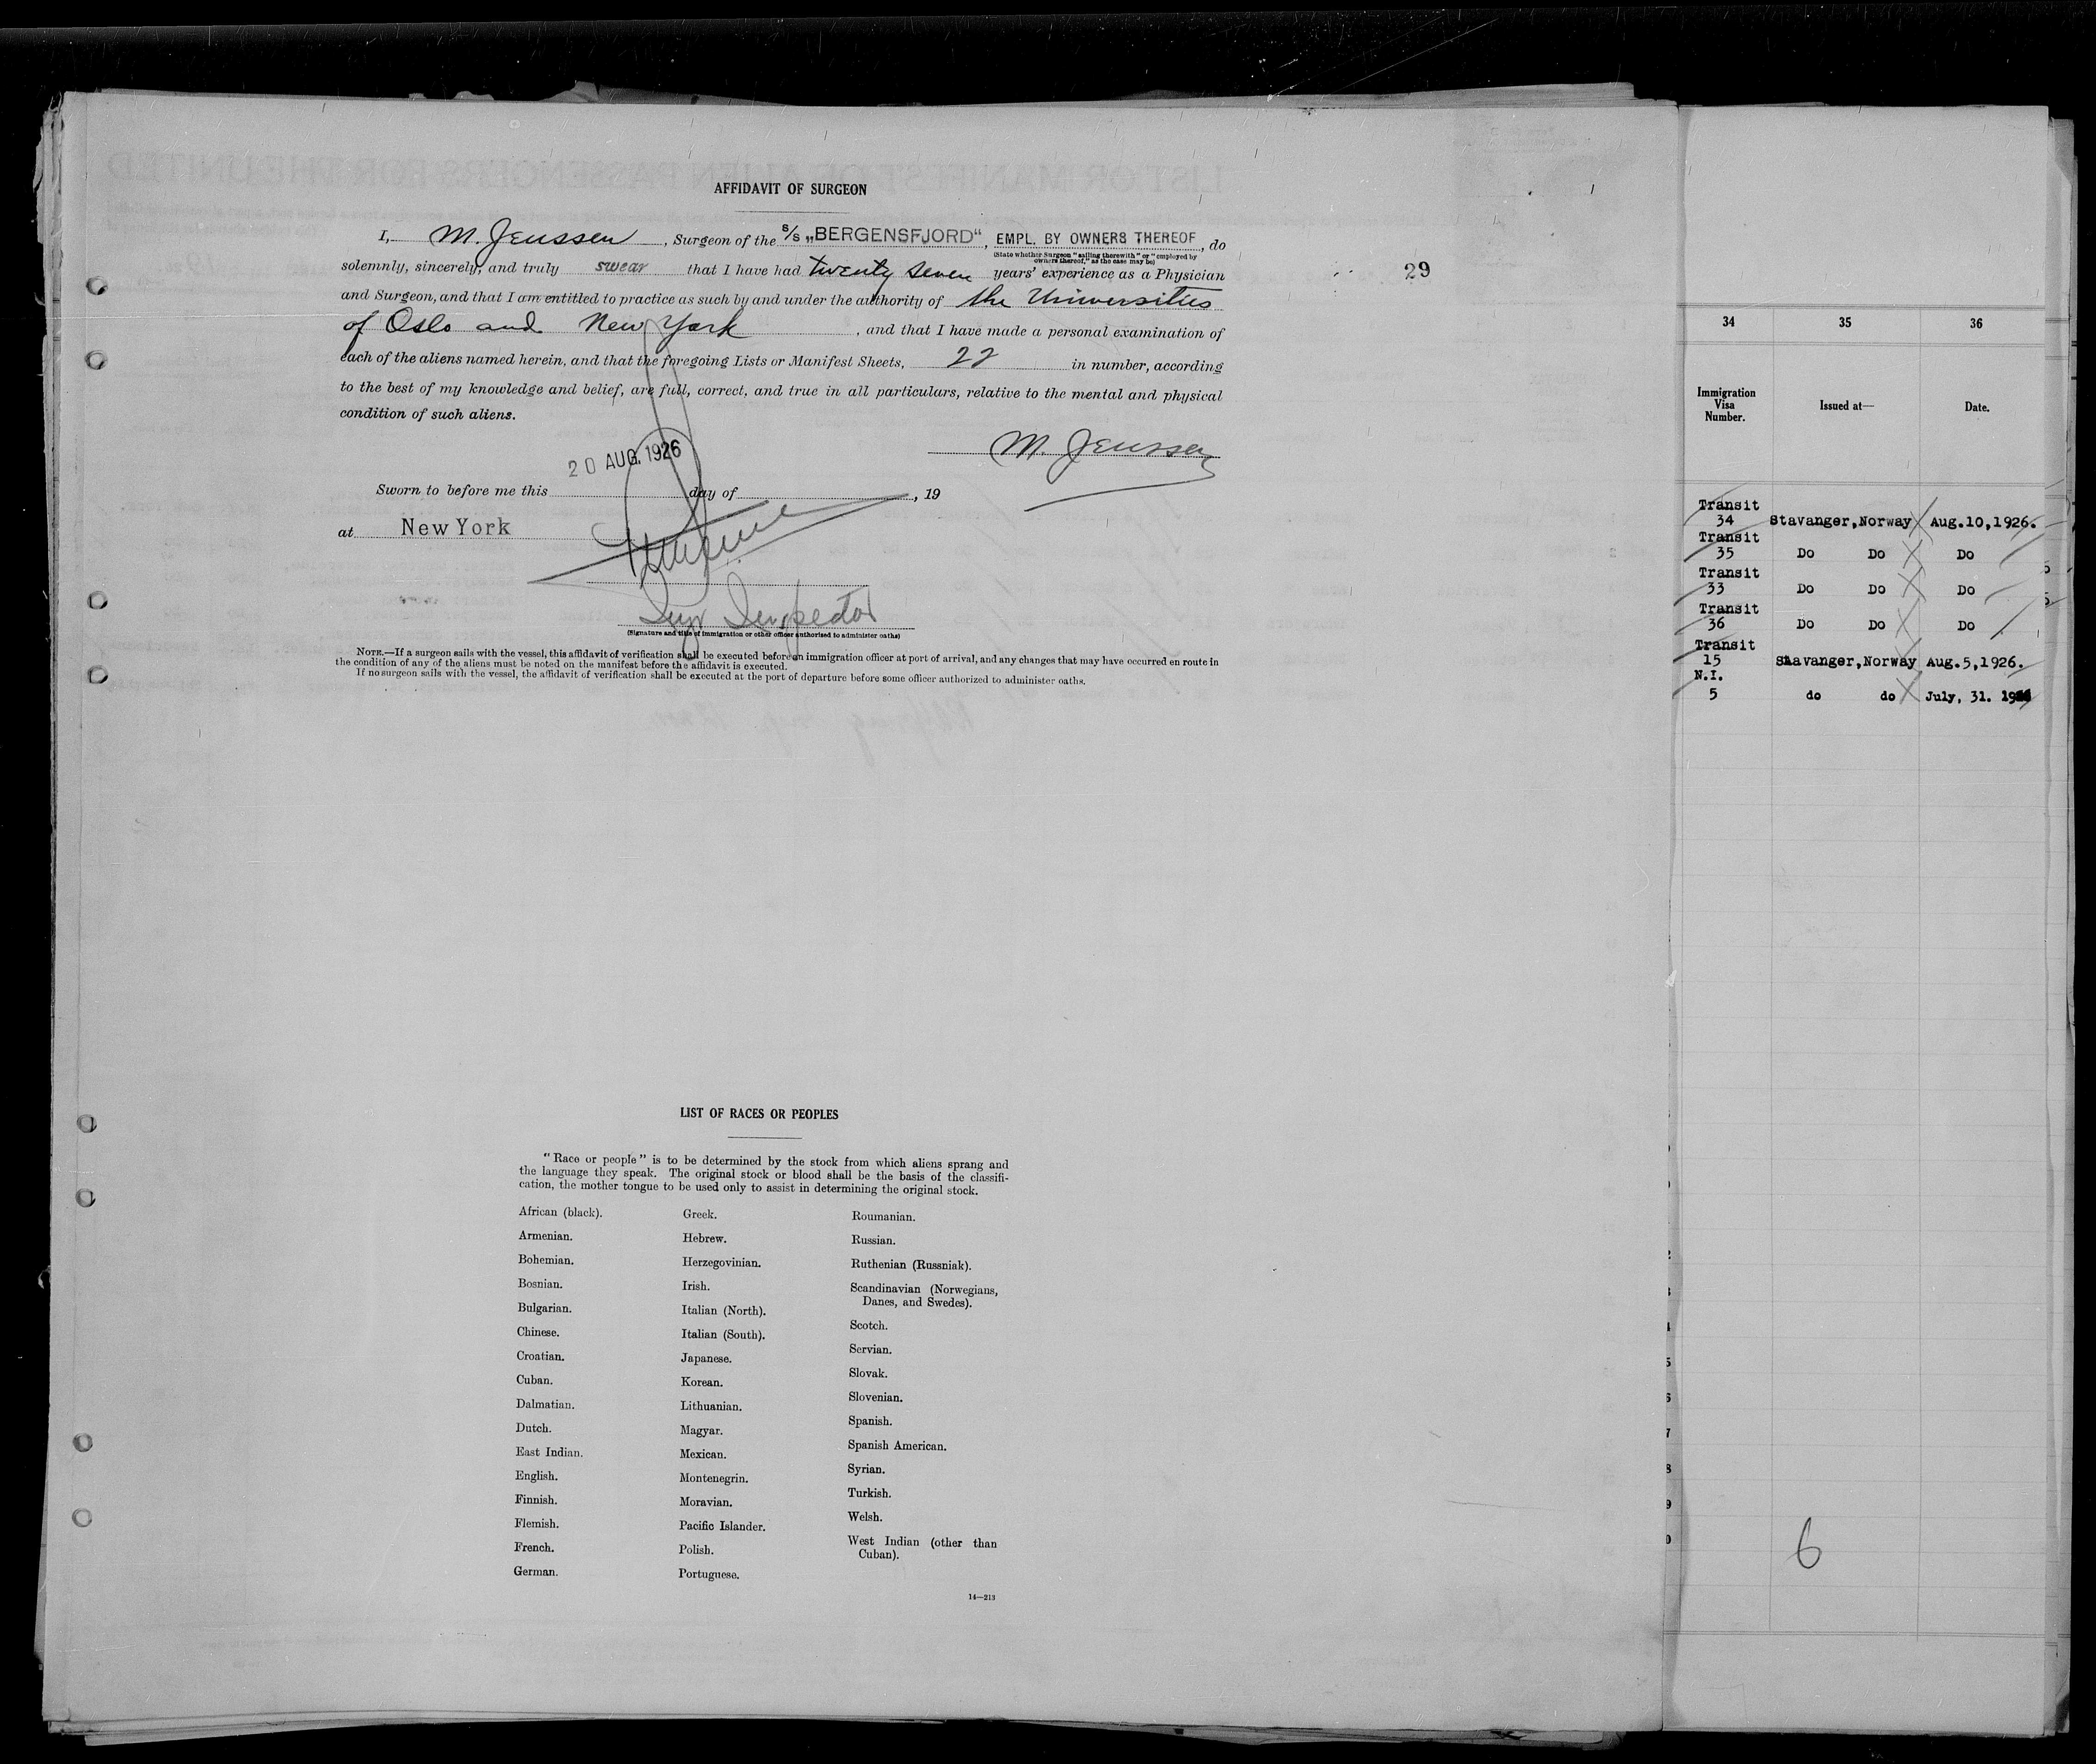 AFFIDAVIT OF SURGEON
I, M. Jenssen, Surgeon of the S/S „BERGENSFJORD“, EMPL. BY OWNERS THEREOF, do
(State whether Surgeon "sailing therewith" or "employed by owners thereof," as the case may be)
solemnly, sincerely, and truly swear that I have had twenty seven years' experience as a Physician
and Surgeon, and that I am entitled to practice as such by and under the authority of the Universities
of Oslo and New York, and that I have made a personal examination of
each of the aliens named herein, and that the foregoing Lists or Manifest Sheets, 22 in number, according
to the best of my knowledge and belief, are full, correct, and true in all particulars, relative to the mental and physical
condition of such aliens.
M. Jenssen
20 AUG. 1926
Sworn to before me this day of , 19
at New York
Inspector
(Signature and title of immigration or other officer authorized to administer oaths)
NOTE.—If a surgeon sails with the vessel, this affidavit of verification shall be executed before an immigration officer at port of arrival, and any changes that may have occurred en route in
the condition of any of the aliens must be noted on the manifest before the affidavit is executed.
If no surgeon sails with the vessel, the affidavit of verification shall be executed at the port of departure before some officer authorized to administer oaths.
LIST OF RACES OR PEOPLES
"Race or people" is to be determined by the stock from which aliens sprang and
the language they speak. The original stock or blood shall be the basis of the classifi-
cation, the mother tongue to be used only to assist in determining the original stock.
African (black).
Armenian.
Bohemian.
Bosnian.
Bulgarian.
Chinese.
Croatian.
Cuban.
Dalmatian.
Dutch.
East Indian.
English.
Finnish.
Flemish.
French.
German.
Greek.
Hebrew.
Herzegovinian.
Irish.
Italian (North).
Italian (South).
Japanese.
Korean.
Lithuanian.
Magyar.
Mexican.
Montenegrin.
Moravian.
Pacific Islander.
Polish.
Portuguese.
Roumanian.
Russian.
Ruthenian (Russniak).
Scandinavian (Norwegians,
Danes, and Swedes).
Scotch.
Servian.
Slovak.
Slovenian.
Spanish.
Spanish American.
Syrian.
Turkish.
Welsh.
West Indian (other than
Cuban).
14—213
29
34 35 36
Immigration Visa Number. Issued at— Date.
Transit
34 Stavanger, Norway Aug.10,1926.
Transit
35 Do Do Do
Transit
33 Do Do Do
Transit
36 Do Do Do
Transit
15 Stavanger, Norway Aug.5,1926.
N.I.
5 do do July, 31. 1926
6